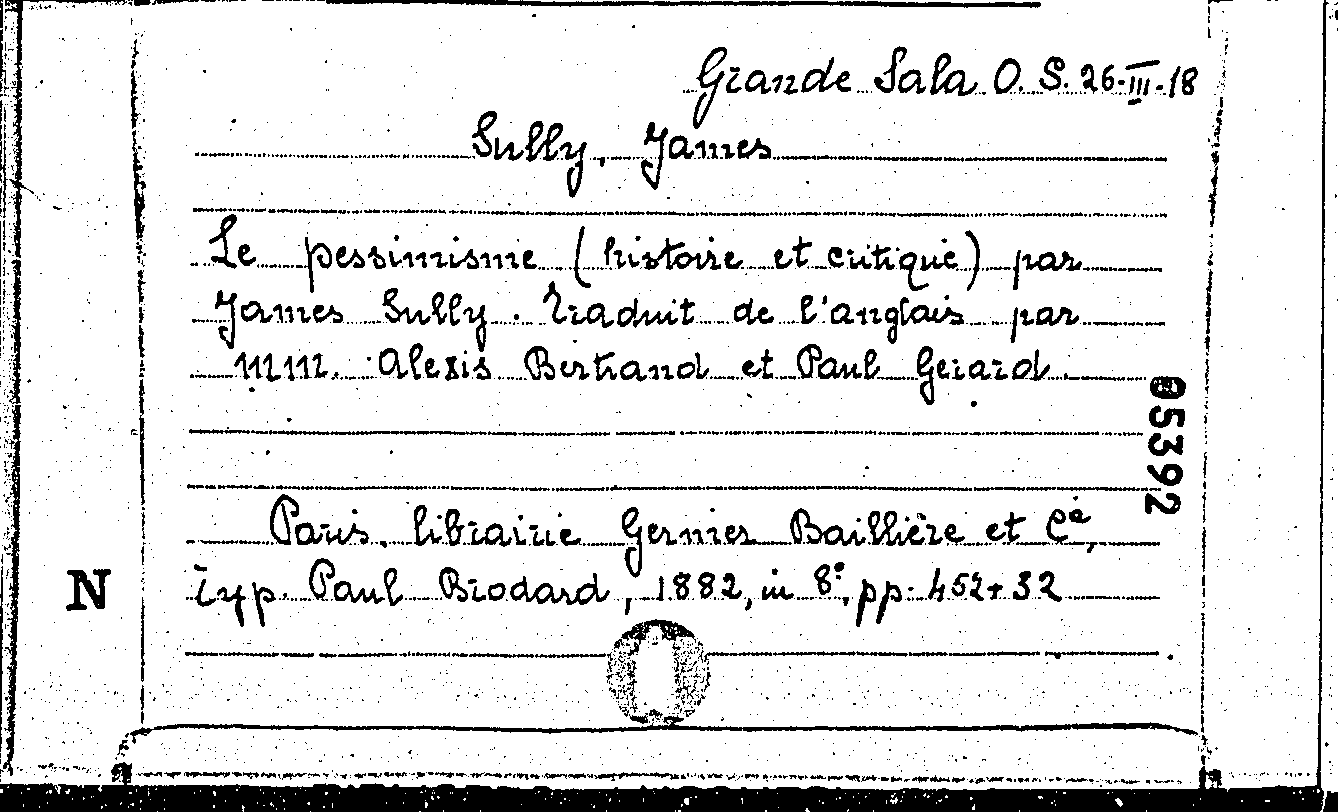 Grande Sala O. S. 26-III-18
Sully, James
Le pessimisme (histoire et critique) par
James Sully. Traduit de l'anglais par
MM. Alexis Bertrand et Paul Gerard.
05392
Paris, librairie Germer Baillière et Cie,
N
Typ. Paul Brodard, 1882, in 8°, pp. 452+32